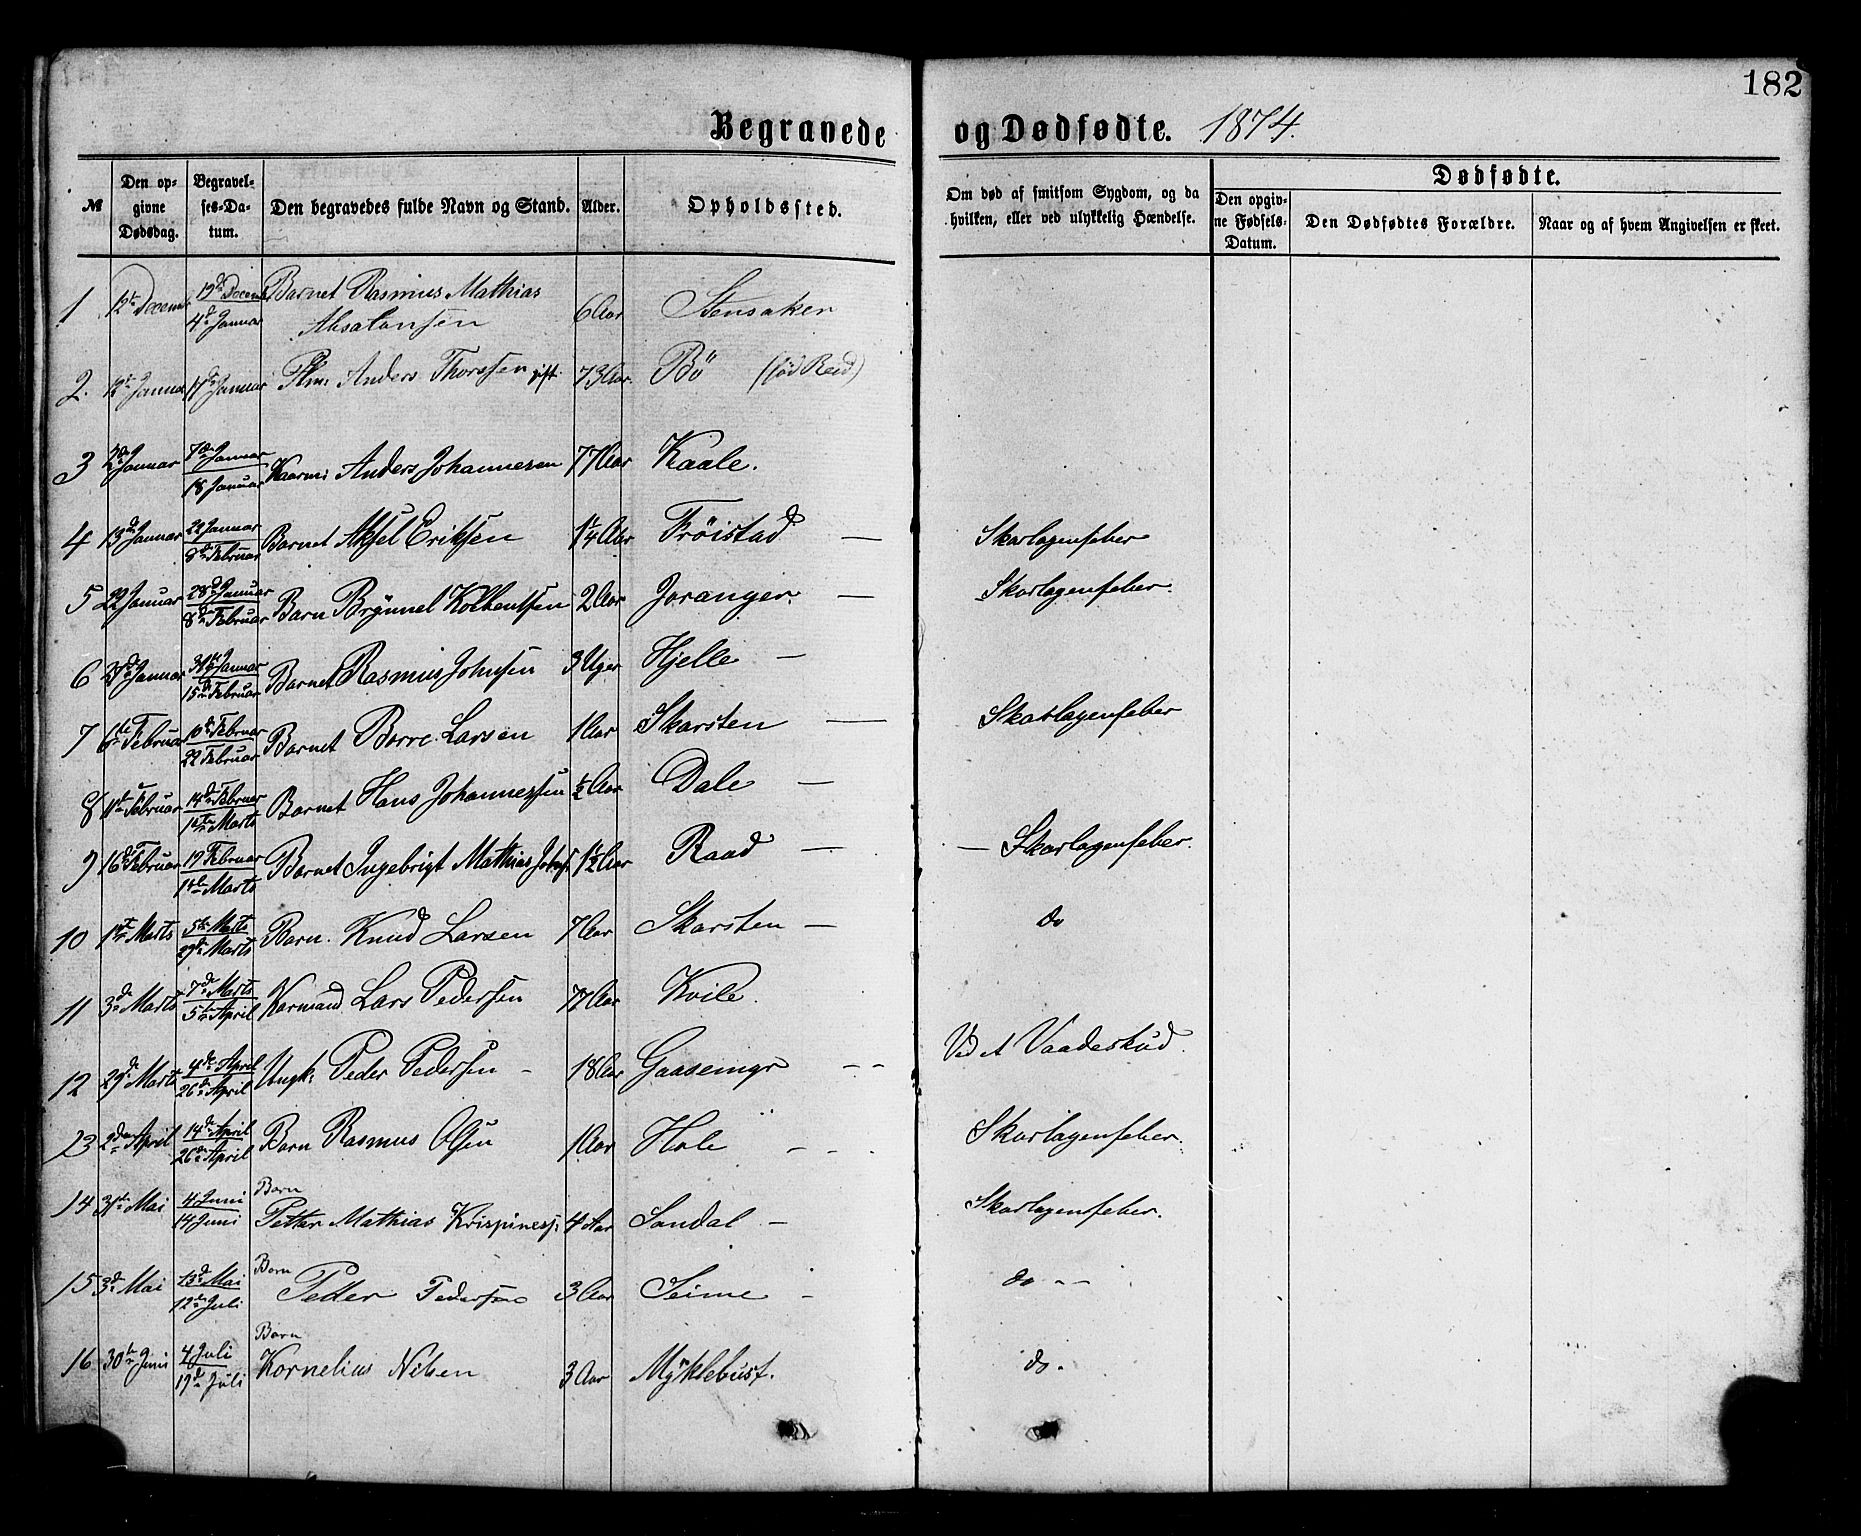 182
Begravede og Dødfødte. 1874.
№ Den opgivne Dødsdag. Begravelses-Datum. Den begravedes fulde Navn og Stand. Alder. Opholdssted. Om død af smitsom Sygdom, og da hvilken, eller ved ulykkelig Hændelse. Dødfødte.
Den opgivne Fødsels-Datum. Den Dødfødtes Forældre. Naar og af hvem Angivelsen er skeet.
1 12te Decembr 19de Decembr Barnet Rasmus Mathias
4de Januar Absalonsen 6 Aar Stensaker
2. 12te Januar 17de Januar Anders Thorssen gift. 73 Aar. Bö (fød Reed)
3 2den Januar 7de Januar
18 Januar Kaarm: Anders Johannesen 77 Aar Kaale.
4 13de Januar 22 Januar
8de Februar Barnet Aksel Eriksen 1 1/4 Aar Fröistad — Skarlagensfeber
5 22 Januar 28de Januar
8de Februar Barn Brynnel Kolbentsen 2 Aar Joranger. — Skarlagenfeber.
6 Januar 31te Januar
15de Februar Barnet Rasmus Johnsen 3 Uger Hjelle —
7 6te Februar 10de Februar
22 Februar Barnet Borre Larsen 1 Aar Skarsten — Skarlagenfeber
8 11te Februar 14de Februar
1te Marts Barnet Hans Johannessen 1/2 Aar Dale —
9 16de Februar 19 Februar
1te Marts Barnet Ingebrigt Mathias Johs: 1 1/2 Aar Raad — — Skarlagenfeber.
10 1te Marts 5te Marts
29de Marts Barn. Knud Larsen 7 Aar Skarsten — do
11 3de Marts 7de Marts
5te April Karmand Lars Pedersen 77 Aar Kvile.
12 29de Marts 4de April
26de April Ungk: Peder Pedersen - 18 Aar Gaasemyr - - Ved et Vaadeskud.
13 2den April 14de April
26de April Barn Rasmus Olsen 1 Aar Hole - - Skarlagenfeber.
14 31te Mai 4 Juni Barn
14 Juni Petter Mathias Krispiness: 4 Aar Sandal — Skarlagenfeber.
15 3de Mai 13de Mai Barn
12te Juli Petter Pedersen 3 Aar Seime - do - -
16 30te Juni 4 Juli Barn
19de Juli Kornelius Nilsen 3 Aar Myklebust. do.